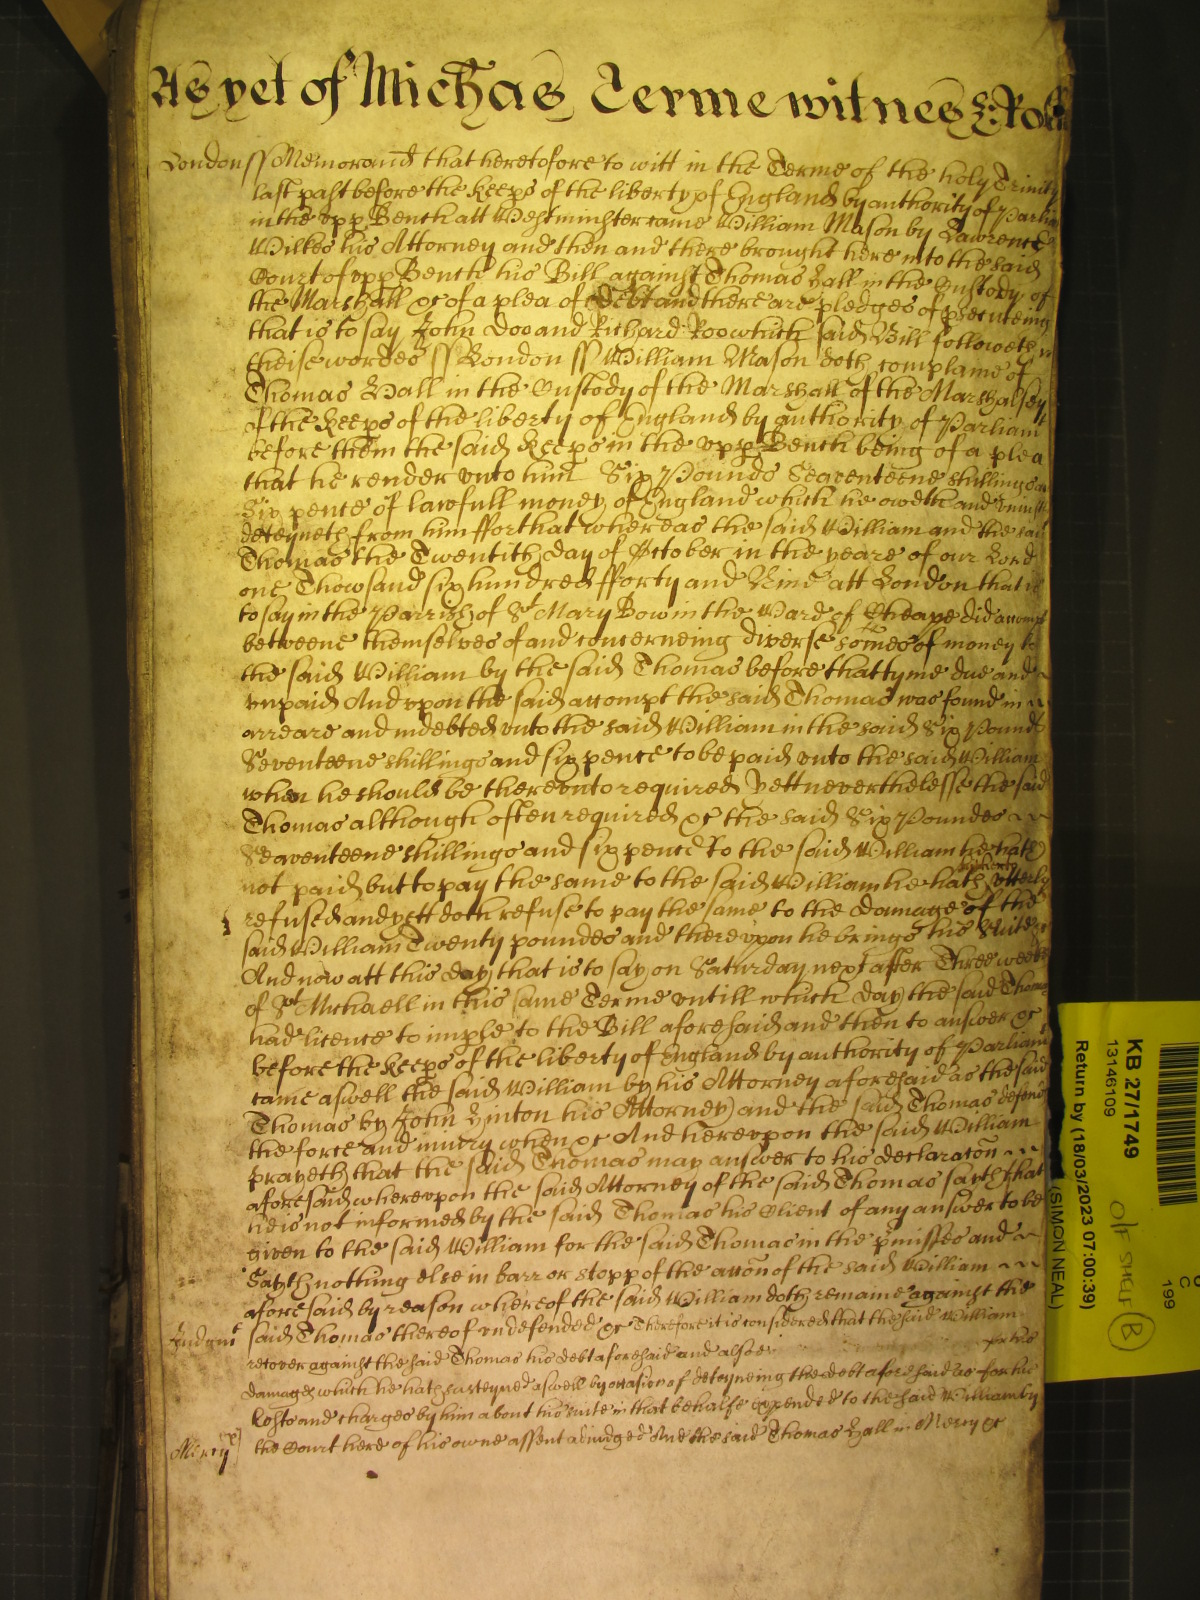 As yet of Michās Terme witnes H: Rolle
London ss Memorand that heretofore to witt in the Terme of the holy Trinity
last past before the Keeps of the liberty of England by authority of Parliam
in the upp Bench att Westminster came William Mason by Lawrence
Wilkes his Attorney and then and there brought here into the said
Court of upp Bench his Bill against Thomas Hall in the Custody of
the Marshall &c of a plea of Debt and there are pledges of psecuteing
that is to say John Doo and Richard Roo which said Bill followeth in
theise wordes ss London ss William Mason doth complaine of
Thomas Hall in the Custody of the Marshall of the Marshalsey
of the Keeps of the liberty of England by authority of Parliamt
before them the said Keeps in the upp Bench being of a plea
that he render unto him Six Pounds Seaventeene shillings and
Six pence of lawfull money of England which he oweth and uniustly
deteyneth from him ffor that whereas the said William and the said
Thomas the Twentith day of October in the yeare of our Lord
one Thowsand six hundred fforty and Nine att London that is
to say in the Parrish of St Mary Bow in the Ward of Cheape did accompt
betweene themselves of and concerneing diverse somes of money to
the said William by the said Thomas before that tyme due and
unpaid And upon the said accompt the said Thomas was found in
arreare and indebted unto the said William in the said Six Pounds
Seventeene shillings and six pence to be paid unto the said William
when he should be thereunto required Yett neverthelesse the said
Thomas although often required &c the said Six Poundes
Seaventeene shillings and six pence to the said William he hath
not paid but to pay the same to the said William he hath utterly
refused and yett doth refuse to pay the same to the damage of the
said William Twenty poundes and thereupon he brings his Suite &c
And now att this day that is to say on Saturday next after Three weekes
of St Michaell in this same Terme untill which day the said Thomas
had licence to imple to the Bill aforesaid and then to answer &c
before the Keeps of the liberty of England by authority of Parliamt
came aswell the said William by his Attorney aforesaid as the said
Thomas by John Hinton his Attorney and the said Thomas defends
the force and iniury when &c And hereupon the said William
prayeth that the said Thomas may answer to his declaracon
aforesaid whereupon the said Attorney of the said Thomas sayth that
he is not informed by the said Thomas his Client of any answer to be
given to the said William for the said Thomas in the pmisses and
Sayth nothing else in barr or stopp of the accon of the said William
aforesaid by reason whereof the said William doth remaine against the
Judgmt said Thomas thereof undefended &c Therefore it is considered that the said William
recover against the said Thomas his debt aforesaid and alsoe for his
damages which he hath susteyned aswell by occasion of deteyneing the debt aforesaid as for his
Costs and charges by him about his suite in that behalfe expended to the said William by
Mercy the Court here of his owne assent adiudged And the said Thomas Hall in Mercy &c
KB 27/1749
13146109
Return by (18/03/2023 07:00:39)
(SIMON NEAL)
OFF SHELF
B
C
199